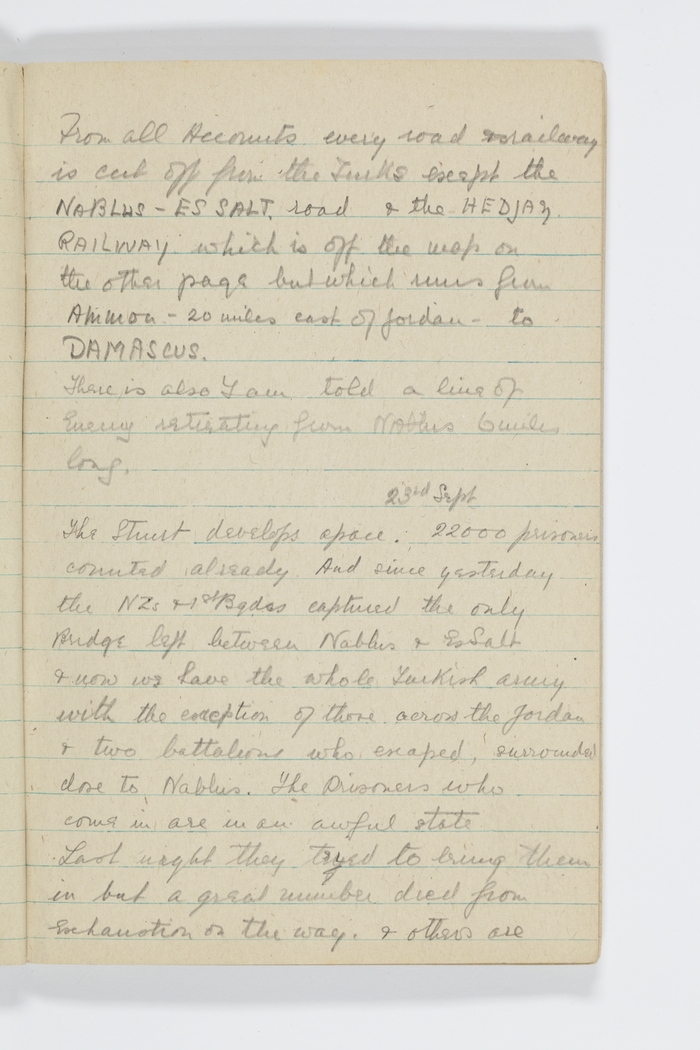 From all Accounts every road & railway
is cut off from the Turks except the
NABLUS - ES SALT, road & the HEDJAZ
RAILWAY which is off the map on
the other page but which runs from
Ammon - 20 miles east of Jordan - to
DAMASCUS.
There is also I am told a line of
Enemy retreating from Nablus 6 miles
long.
23rd Sept
The Stunt develops apace. 22000 prisoners
counted already And since yesterday
the NZs & 1st Bgdes captured the only
Bridge left between Nablus & EsSalt
& now we have the whole Turkish army
with the exception of those across the Jordan
& two battalions who escaped, surrounded
close to Nablus. The Prisoners who
come in are in an awful state
Last night they tryed to bring them
in but a great number died from
Exhaustion on the way. & others are